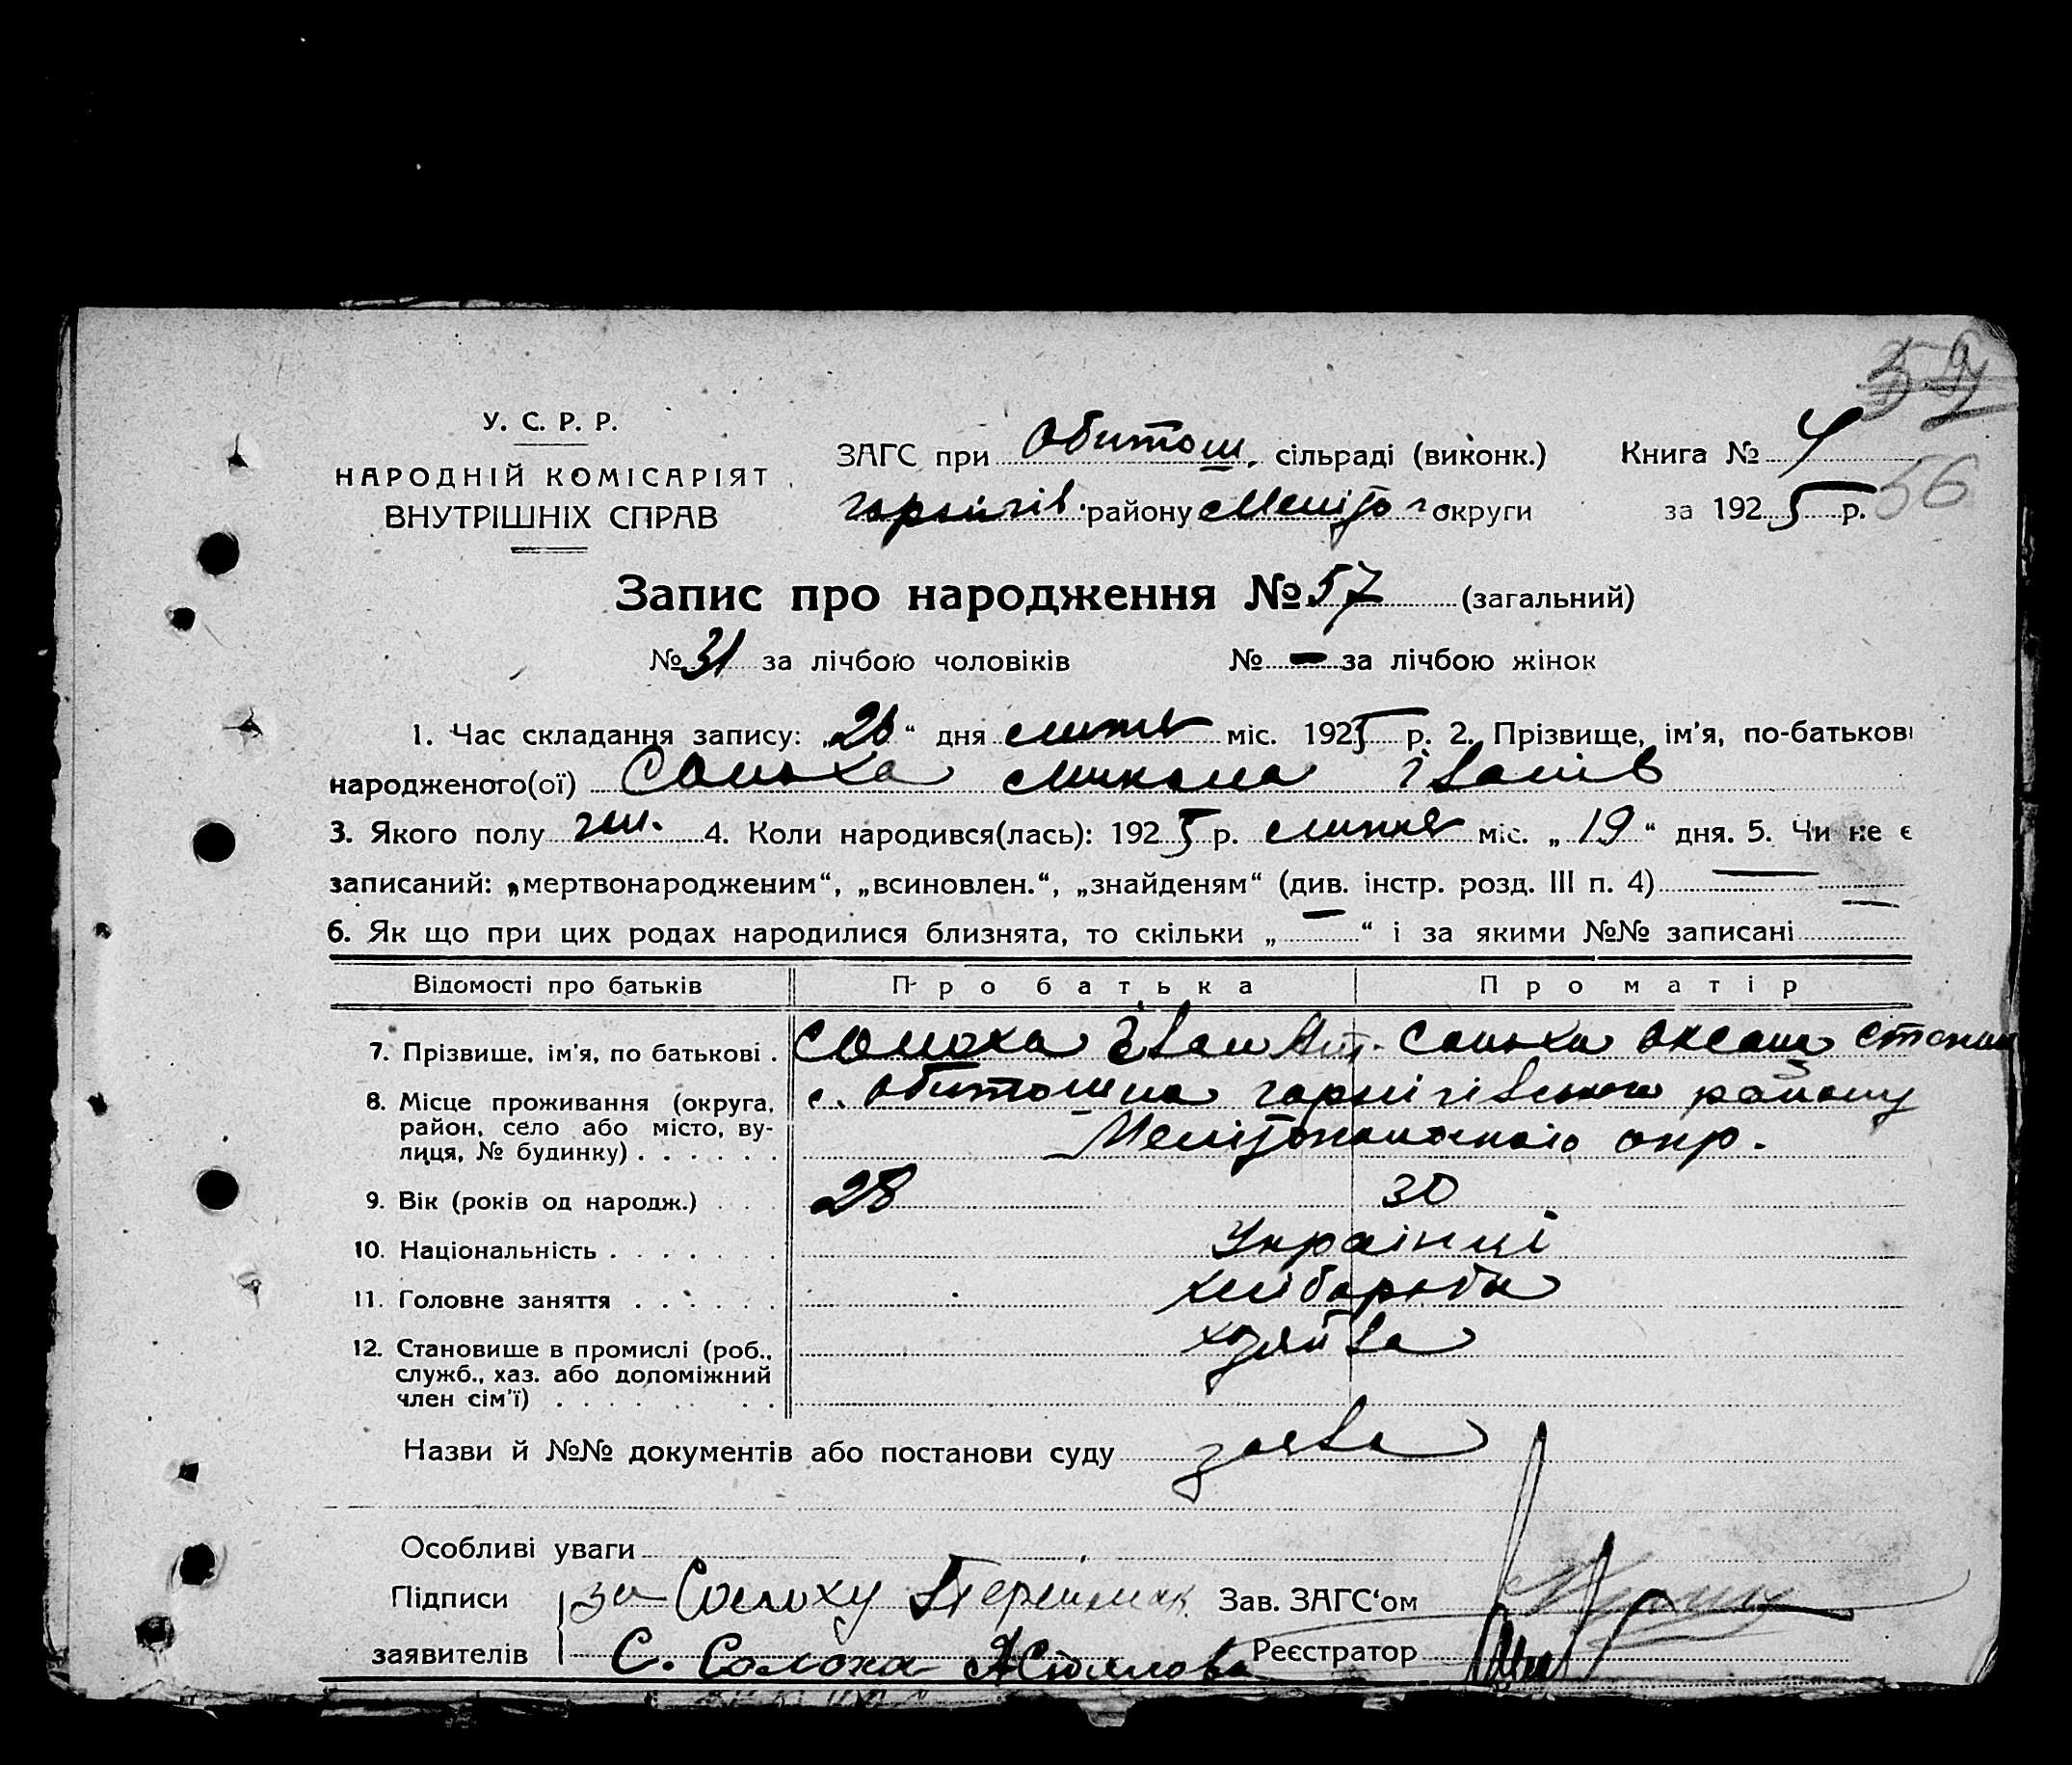 59
У. С. Р. Р.
НАРОДНІЙ КОМІСАРІЯТ
ВНУТРІШНІХ СПРАВ
ЗАГС при Обитош. сільраді (виконк.)
району Меліто округи
Книга № 4
56
за 1925 р.
Запис про народження № 57 (загальний)
№ 31 за лічбою чоловіків № — за лічбою жінок
1. Час складання запису: „26“ дня липня міс. 1925 р. 2. Прізвище, ім'я, по-батькові
народженого(ої) Солоха Микола Іванів
3. Якого полу чол. 4. Коли народився(лась): 1925 р. липня міс. „19“ дня. 5. Чи не є
записаний: „мертвонародженим“, „всиновлен.“, „знайденям“ (див. інстр. розд. III п. 4) —
6. Як що при цих родах народилися близнята, то скільки „—“ і за якими №№ записані —
Відомості про батьків Про батька Про матір
7. Прізвище, ім'я, по батькові . Солоха Іван Солоха Оксана Степан
8. Місце проживання (округа, район, село або місто, вулиця, № будинку) . . . . . . с. Обиточна району
Мелітопольського окр.
9. Вік (років од народж.) . . . 28 30
10. Національність . . . . . . . Українці
11. Головне заняття . . . . . . хліборобы
12. Становище в промислі (роб., служб., хаз. або допоміжний член сім'ї) . . . . . . . . хозяйва
Назви й №№ документів або постанови суду заява
Особливі уваги
Підписи за Солоху Зав. ЗАГС'ом
заявителів С. Солоха Реєстратор